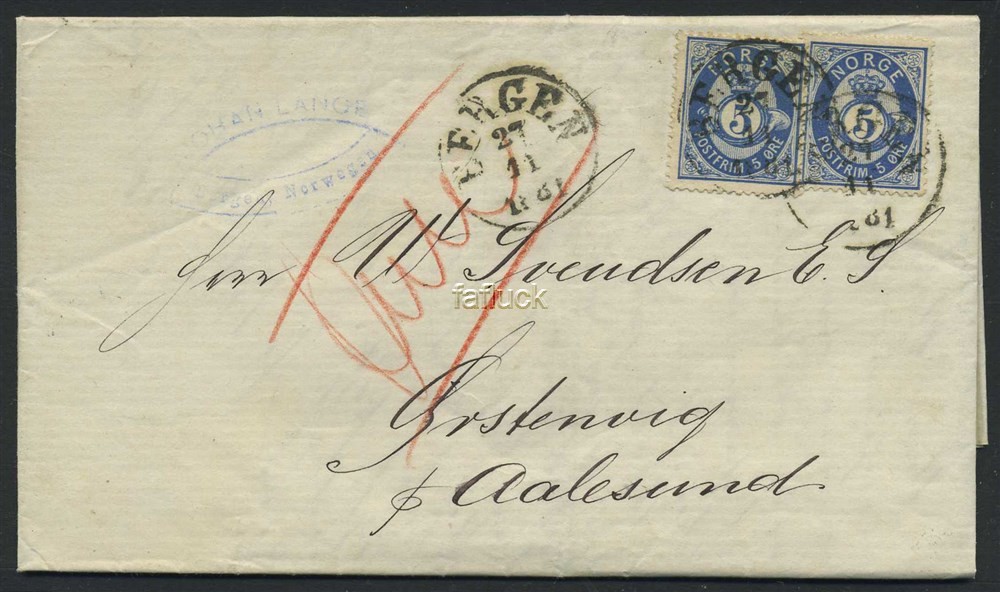 JOHAN LANGE
Bergen, Norwegen
BERGEN
27
11
1881
NORGE
5
POSTFRIM. 5 ØRE
NORGE
5
POSTFRIM. 5 ØRE
BERGEN
27
11
BERGEN
27
11
1881
Herr W Svendsen E. S
fafluck
Ørstenvig
p Aalesund